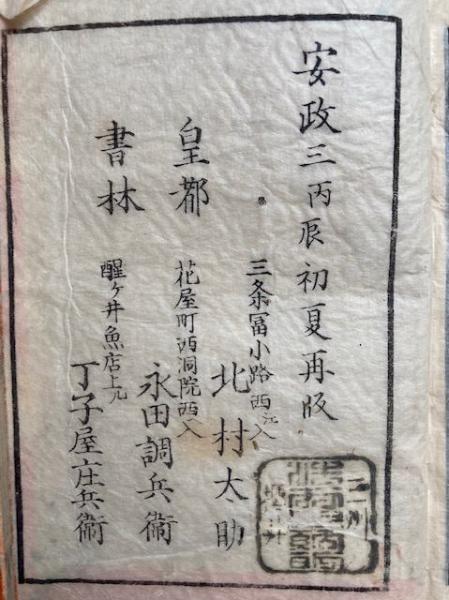 安政三丙辰初夏再版
三条冨小路西江入
北村太助
皇都
花屋町西洞院西入
永田調兵衛
書林
醒ヶ井魚店上ル
丁子屋庄兵衛